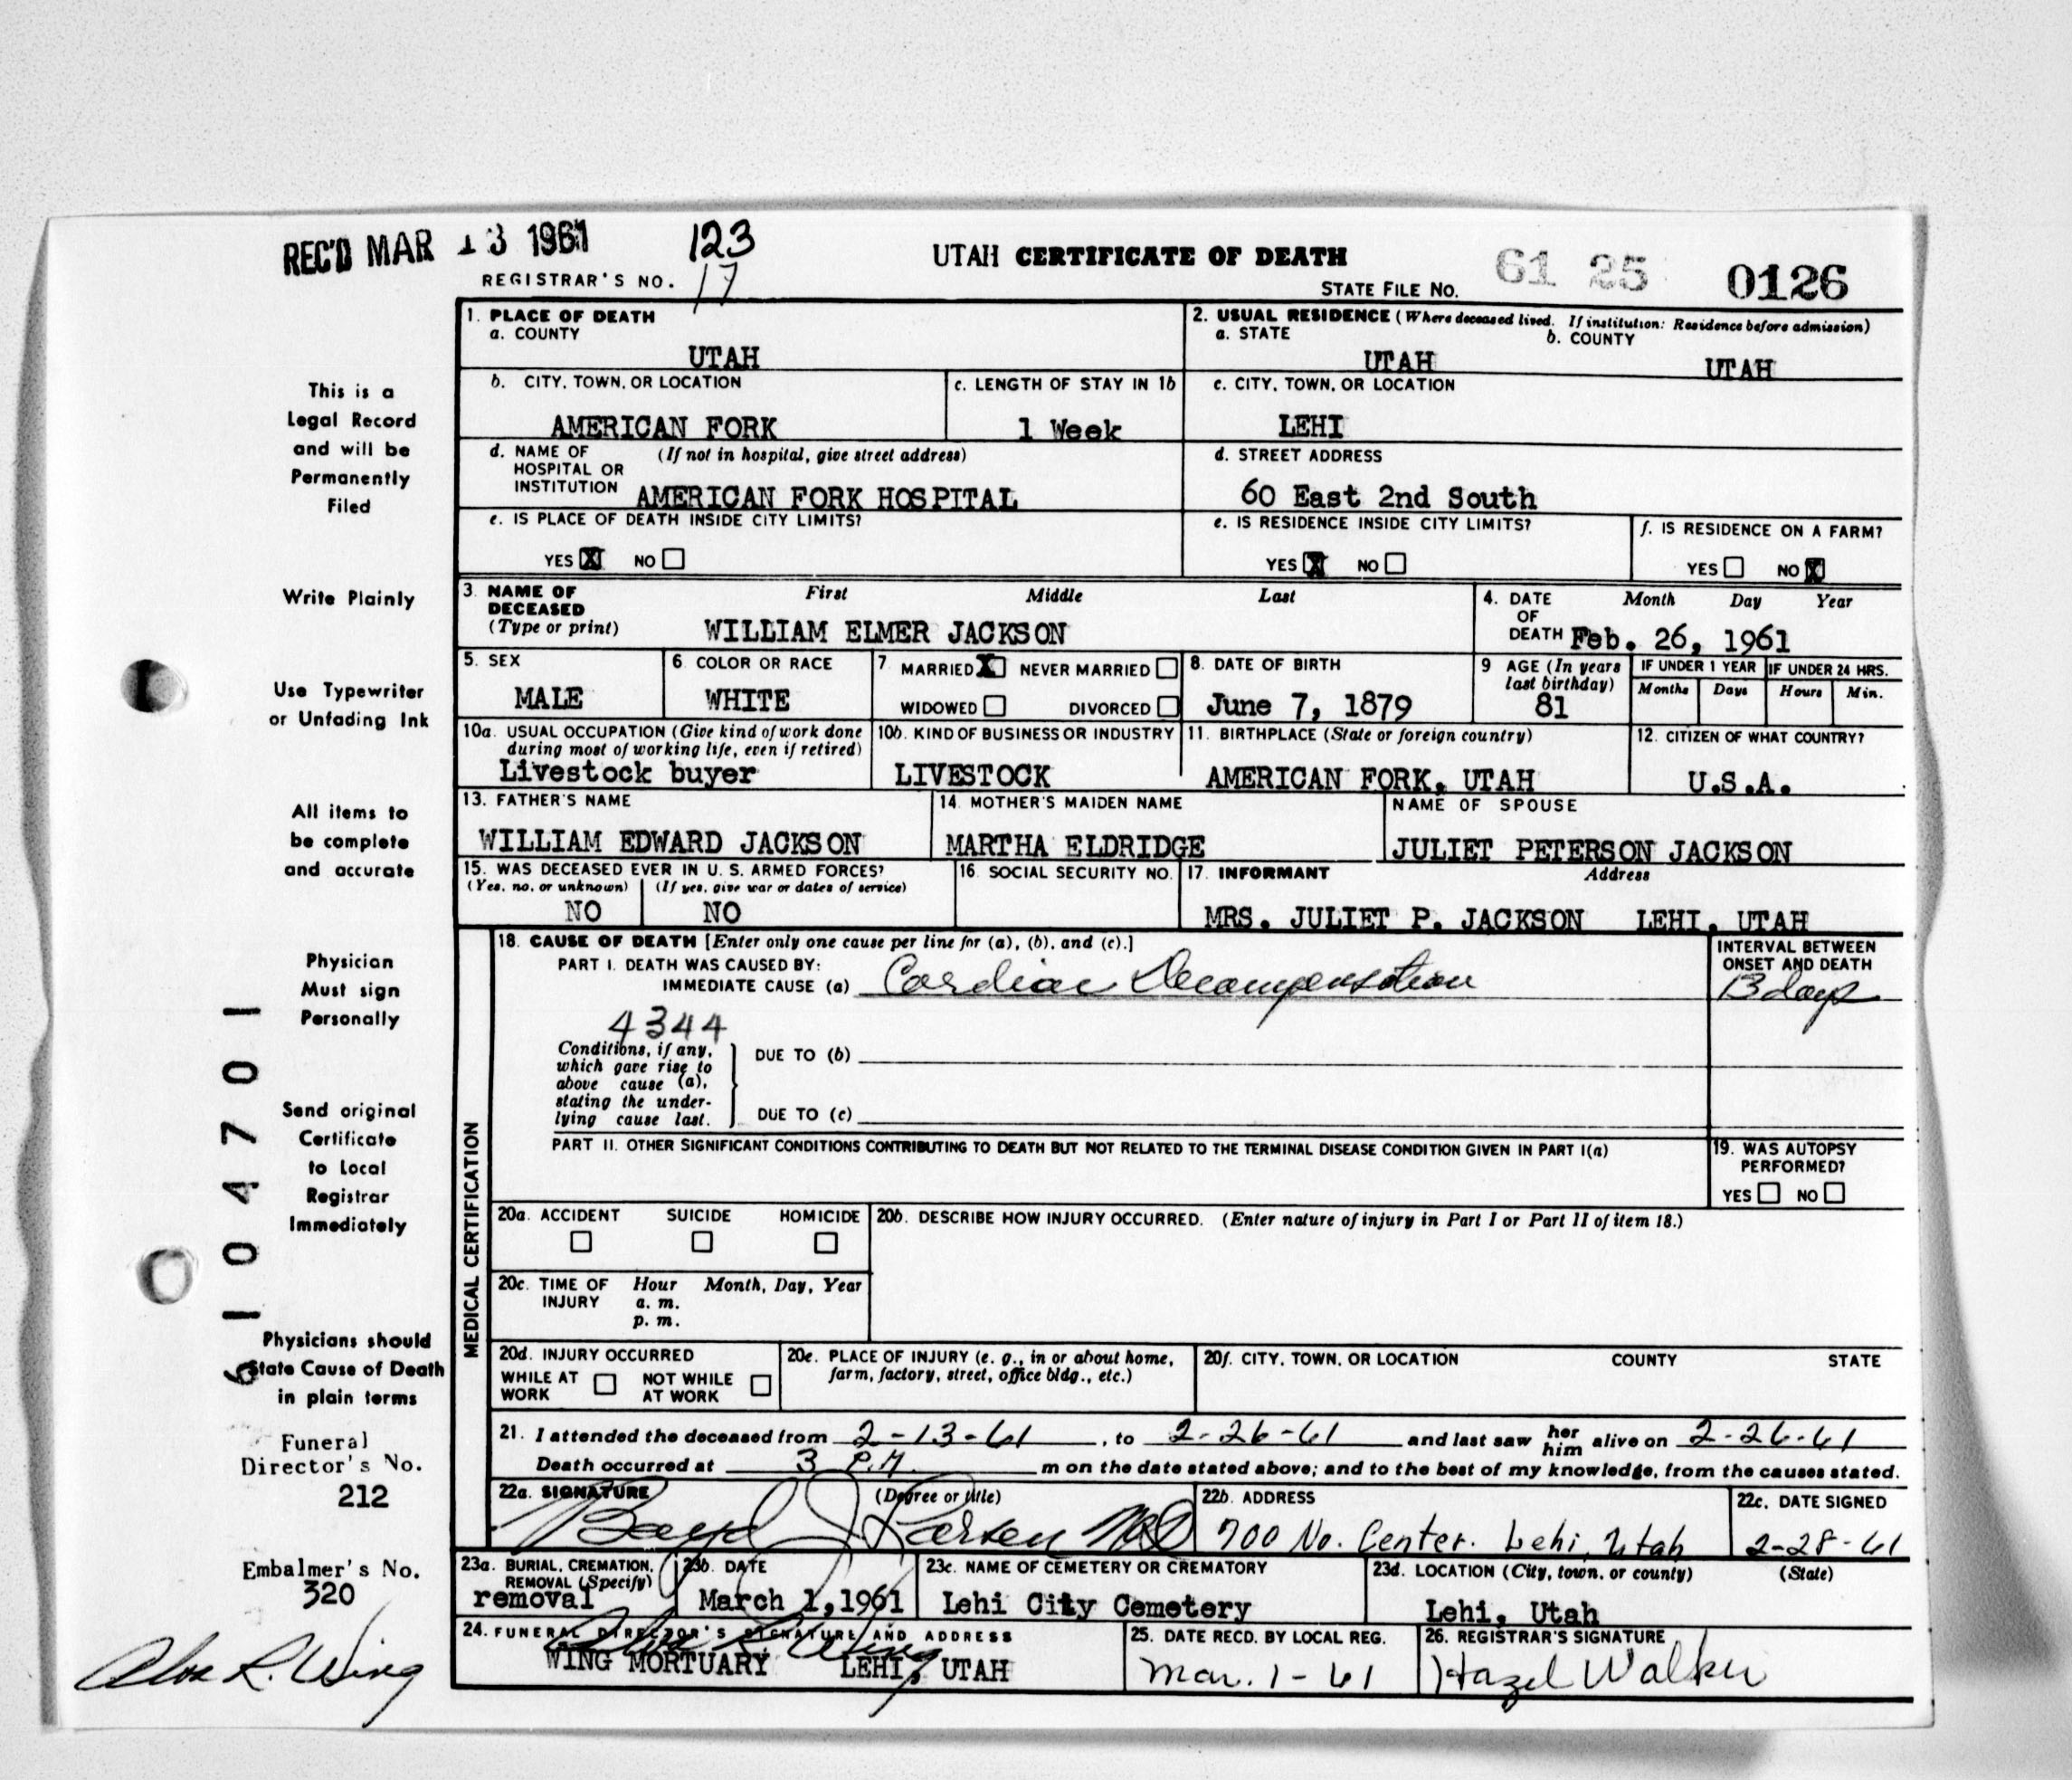 REC'D MAR 13 1961
123
UTAH CERTIFICATE OF DEATH
REGISTRAR'S NO. 17
STATE FILE NO. 61 25 0126
1. PLACE OF DEATH
a. COUNTY
UTAH
2. USUAL RESIDENCE (Where deceased lived. If institution: Residence before admission)
a. STATE
b. COUNTY
UTAH UTAH
b. CITY, TOWN, OR LOCATION
AMERICAN FORK
c. LENGTH OF STAY IN 1b
1 Week
c. CITY, TOWN, OR LOCATION
LEHI
d. NAME OF HOSPITAL OR INSTITUTION (If not in hospital, give street address)
AMERICAN FORK HOSPITAL
d. STREET ADDRESS
60 East 2nd South
e. IS PLACE OF DEATH INSIDE CITY LIMITS?
YES X NO
e. IS RESIDENCE INSIDE CITY LIMITS?
YES X NO
f. IS RESIDENCE ON A FARM?
YES NO X
3. NAME OF DECEASED (Type or print)
First Middle Last
WILLIAM ELMER JACKSON
4. DATE OF DEATH
Month Day Year
Feb. 26, 1961
5. SEX
MALE
6. COLOR OR RACE
WHITE
7. MARRIED X NEVER MARRIED
WIDOWED DIVORCED
8. DATE OF BIRTH
June 7, 1879
9 AGE (In years last birthday)
81
IF UNDER 1 YEAR
Months Days
IF UNDER 24 HRS.
Hours Min.
10a. USUAL OCCUPATION (Give kind of work done during most of working life, even if retired)
Livestock buyer
10b. KIND OF BUSINESS OR INDUSTRY
LIVESTOCK
11. BIRTHPLACE (State or foreign country)
AMERICAN FORK, UTAH
12. CITIZEN OF WHAT COUNTRY?
U.S.A.
13. FATHER'S NAME
WILLIAM EDWARD JACKSON
14. MOTHER'S MAIDEN NAME
MARTHA ELDRIDGE
NAME OF SPOUSE
JULIET PETERSON JACKSON
15. WAS DECEASED EVER IN U.S. ARMED FORCES?
(Yes, no, or unknown) (If yes, give war or dates of service)
NO NO
16. SOCIAL SECURITY NO.
17. INFORMANT Address
MRS. JULIET P. JACKSON LEHI, UTAH
MEDICAL CERTIFICATION
18. CAUSE OF DEATH [Enter only one cause per line for (a), (b), and (c).]
PART I. DEATH WAS CAUSED BY:
IMMEDIATE CAUSE (a) Cardiac Decompensation
INTERVAL BETWEEN ONSET AND DEATH
13 days
4344
Conditions, if any, which gave rise to above cause (a), stating the underlying cause last.
DUE TO (b)
DUE TO (c)
PART II. OTHER SIGNIFICANT CONDITIONS CONTRIBUTING TO DEATH BUT NOT RELATED TO THE TERMINAL DISEASE CONDITION GIVEN IN PART I(a)
19. WAS AUTOPSY PERFORMED?
YES NO
20a. ACCIDENT SUICIDE HOMICIDE
20b. DESCRIBE HOW INJURY OCCURRED. (Enter nature of injury in Part I or Part II of item 18.)
20c. TIME OF INJURY
Hour Month, Day, Year
a. m.
p. m.
20d. INJURY OCCURRED
WHILE AT WORK NOT WHILE AT WORK
20e. PLACE OF INJURY (e. g., in or about home, farm, factory, street, office bldg., etc.)
20f. CITY, TOWN, OR LOCATION COUNTY STATE
21. I attended the deceased from 2-13-61, to 2-26-61 and last saw her him alive on 2-26-61
Death occurred at 3 P.M. m on the date stated above; and to the best of my knowledge, from the causes stated.
22a. SIGNATURE (Degree or title)
Boyd J Larsen MD
22b. ADDRESS
700 No. Center. Lehi, Utah
22c. DATE SIGNED
2-28-61
23a. BURIAL, CREMATION, REMOVAL (Specify)
removal
23b. DATE
March 1, 1961
23c. NAME OF CEMETERY OR CREMATORY
Lehi City Cemetery
23d. LOCATION (City, town, or county) (State)
Lehi, Utah
24. FUNERAL DIRECTOR'S SIGNATURE AND ADDRESS
Alva R. Wing
WING MORTUARY LEHI, UTAH
25. DATE RECD. BY LOCAL REG.
Mar. 1-61
26. REGISTRAR'S SIGNATURE
Hazel Walker
This is a
Legal Record
and will be
Permanently
Filed
Write Plainly
Use Typewriter
or Unfading Ink
All items to
be complete
and accurate
Physician
Must sign
Personally
Send original
Certificate
to Local
Registrar
Immediately
Physicians should
State Cause of Death
in plain terms
Funeral
Director's No.
212
Embalmer's No.
320
Alva R. Wing
6104701